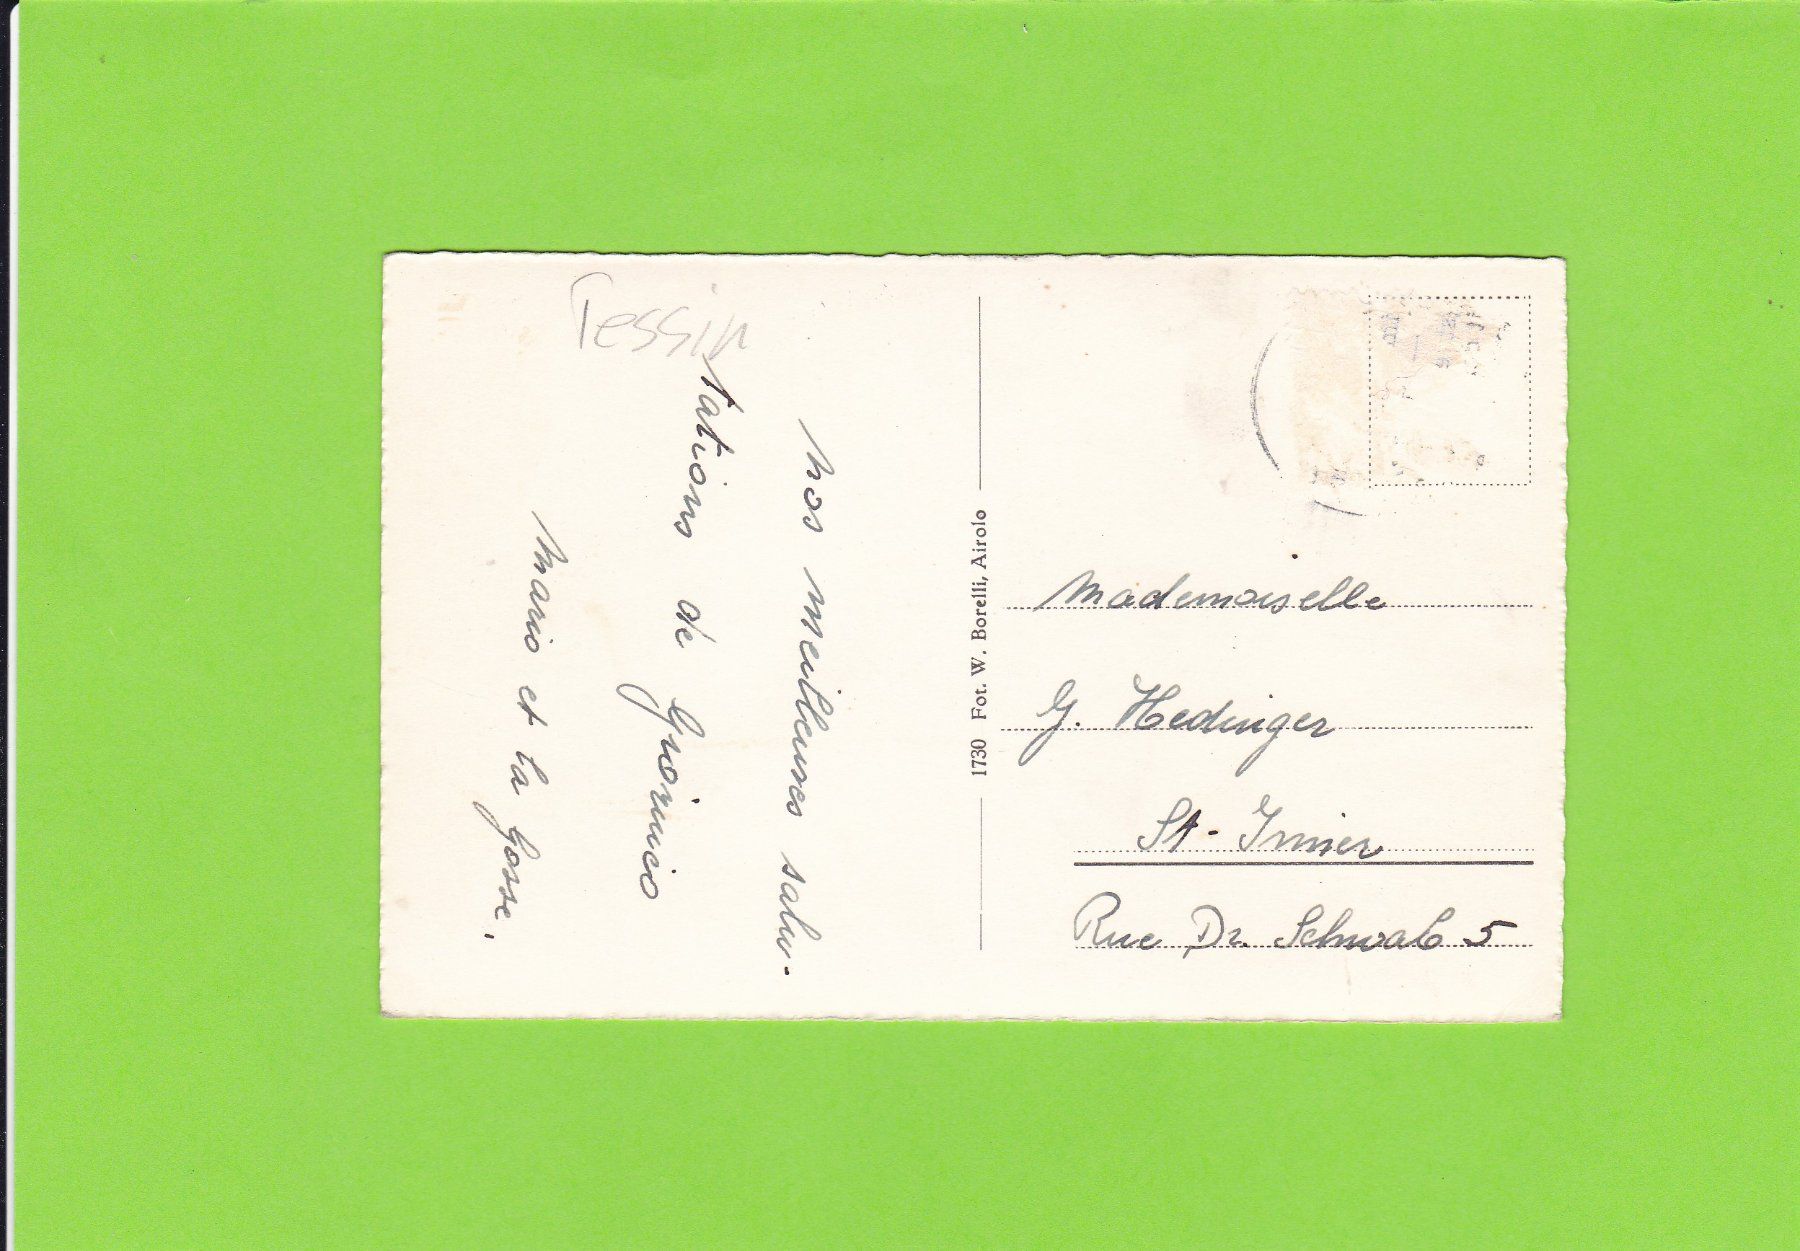 Tessin
Nos meilleures salu-
tations de Giornico
Mario et la Gosse.
1730 Fot. W. Borelli, Airolo
Mademoiselle
G. Hedinger
St-Imier
Rue Dr. Schwab 5